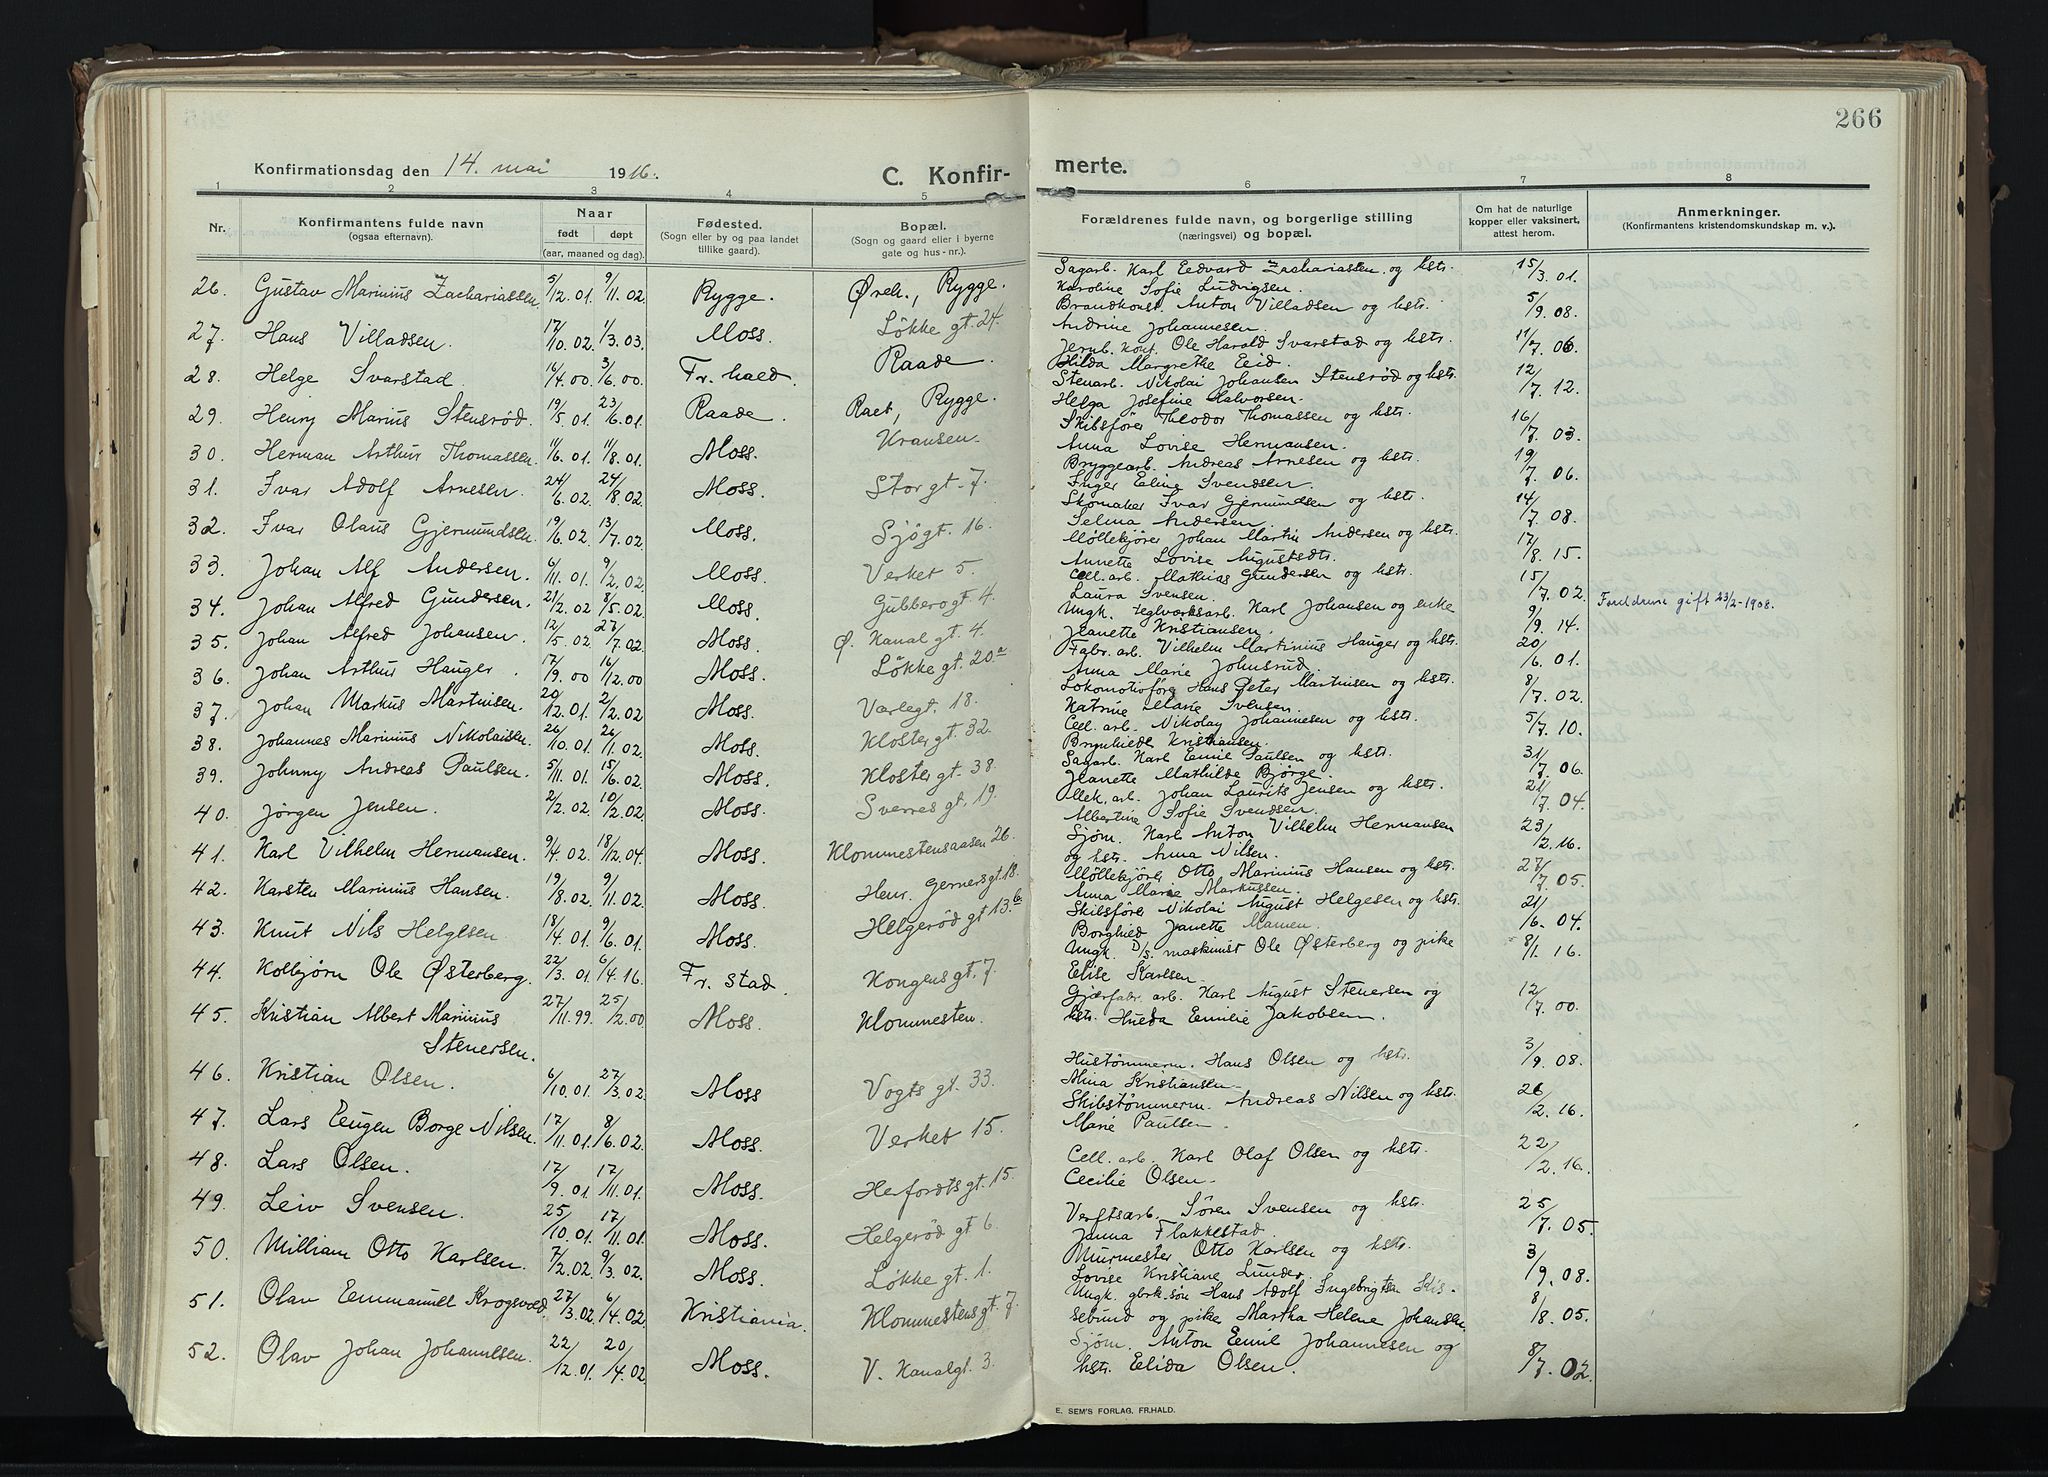 266
Konfirmationsdag den 14. mai 1916.
C. Konfirmerte.
1 2 3 4 5 6 7 8
Nr.
Konfirmantens fulde navn (ogsaa efternavn).
Naar født døpt (aar, maaned og dag).
Fødested. (Sogn eller by og paa landet tillike gaard).
Bopæl. (Sogn og gaard eller i byerne gate og hus-nr.).
Forældrenes fulde navn, og borgerlige stilling (næringsvei) og bopæl.
Om hat de naturlige kopper eller vaksinert, attest herom.
Anmerkninger. (Konfirmantens kristendomskundskap m. v.).
26. Gustav Marinius Zachariassen. 5/12.01. 9/11.02. Rygge. Øreh., Rygge. Sagarb. Karl Edvard Zachariassen og hstr. Karoline Sofie Ludvigsen. 15/3.01.
27. Hans Villadsen. 17/10.02. 1/3.03. Moss. Løkke gt. 24. Brandkonst. Anton Villadsen og hstr. Andrine Johannesen. 5/9.08.
28. Helge Svarstad. 16/4.00. 3/6.00. Fr. hald. Raade. Jernb. kont. Ole Harald Svarstad og hstr. Hilda Margrethe Eid. 11/7.06.
29. Henry Marius Stensrød. 19/5.01. 23/6.01. Raade. Raet, Rygge. Stenarb. Nikolai Johansen Stensrød og hstr. Helga Josefine Halvorsen. 12/7.12.
30. Herman Arthur Thomassen. 11/6.01. 11/8.01. Moss. Kransen. Skibsfører Theodor Thomassen og hstr. Anna Lovise Hermansen. 16/7.03.
31. Ivar Adolf Arnesen. 24/6.02. 24/8.02. Moss. Stor gt. 7. Bryggearb. Andreas Arnesen og hstr. Inger Eline Svendsen. 19/7.06.
32. Ivar Olaus Gjermundsen. 19/6.02. 13/7.02. Moss. Sjøgt. 16. Skomaker Ivar Gjermundsen og hstr. Selma Andersen. 14/7.08.
33. Johan Alf Andersen. 6/11.01. 9/2.02. Moss. Verket 5. Møllekjører Johan Martin Andersen og hstr. Annette Lovise Augustsdtr. 17/8.15.
34. Johan Alfred Gundersen. 21/2.02. 8/5.02. Moss. Gubberogt. 4. Cell. arb. Mathias Gundersen og hstr. Laura Svensen. 15/7.02. Foreldrene gift 23/2-1908.
35. Johan Alfred Johansen. 12/5.02. 27/7.02. Moss. Ø. Kanal gt. 4. Ungk. teglværksarb. Karl Johansen og enke Jeanette Kristiansen. 9/9.14.
36. Johan Arthur Hauger. 17/9.00. 16/12.00 Moss. Løkke gt. 20a. Fabr. arb. Vilhelm Martinius Hauger og hstr. Anna Marie Johnsrud. 20/6.01.
37. Johan Markus Martinsen. 20/12.01. 2/2.02 Moss. Varlegt. 18. Lokomotivfører Hans Peter Martinsen og hstr. Katrine Marie Svensen. 8/7.02.
38. Johannes Marinius Nikolaisen. 26/10.01. 26/11.02. Moss. Kloster gt. 32. Cell. arb. Nikolay Johannesen og hstr. Brynhilde Kristiansen. 5/7.10.
39. Johnny Andreas Paulsen. 5/11.01. 15/6.02. Moss. Kloster gt. 38. Sagarb. Karl Emil Paulsen og hstr. Jeanette Mathilde Bjørge. 31/7.06.
40. Jørgen Jensen. 2/2.02. 10/2.02. Moss. Sverres gt. 19. Mek. arb. Johan Laurits Jensen og hstr. Albertine Sofie Svendsen. 21/7.04.
41. Karl Vilhelm Hermansen. 9/4.02. 18/12.04. Moss. Klommestensaasen 26. Sjøm. Karl Anton Vilhelm Hermansen og hstr. Anna Nilsen. 23/2.16.
42. Karsten Marinius Hansen. 19/8.02. 9/11.02. Moss. Henr. Gerners gt. 18. Møllekjører Otto Marinius Hansen og hstr. Anna Marie Markussen. 27/7.05.
43. Knut Nils Helgesen 18/4.01. 9/6.01. Moss. Helgerød gt 13.b Skibsfører Nikolai August Helgesen og hstr. Borghild Jeanette Mamen. 21/6.04.
44. Kolbjørn Ole Østerberg. 22/3.01. 6/4.16. Fr. stad. Kongens gt. 7. Ungk. D/s. maskinist Ole Østerberg og pike Elise Karlsen. 8/1.16.
45. Kristian Albert Marinius Stenersen. 27/11.99. 25/2.00 Moss. Klommesten. Gjærfabr. arb. Karl August Stenersen og hstr. Hulda Emilie Jakobsen. 12/7.00.
46. Kristian Olsen. 6/10.01. 27/3.02. Moss Vogts gt. 33. Hustømmerm. Hans Olsen og hstr. Mina Kristiansen. 3/9.08.
47. Lars Eugen Borge Nilsen. 17/11.01. 8/6.02. Moss. Verket 15. Skibstømmerm. Andreas Nilsen og hstr. Marie Paulsen. 26/2.16.
48. Lars Olsen. 17/9.01. 17/11.01. Moss. Herfordts gt. 15. Cell. arb. Karl Olaf Olsen og hstr. Cecilie Olsen. 22/2.16.
49. Leiv Svensen. 25/10.01. 17/11.01. Moss. Helgerød gt 6. Verftsarb. Søren Svensen og hstr. Janna Flakkestad. 25/7.05.
50. William Otto Karlsen. 7/2.02. 9/3.02. Moss. Løkke gt. 1. Murmester Otto Karlsen og hstr. Lovise Kristiane Lunder. 3/9.08.
51. Olav Emmanuel Krogsvold. 27/3.02. 6/4.02. Kristiania. Klommestens gt. 7. Ungk. gbrk. søn Hans Adolf Ingebrigtsen og pike Martha Helene Johansen. 8/8.05.
52. Olav Johan Johannesen. 22/12.01. 20/4.02 Moss. V. Kanalgt. 3. Sjøm. Anton Emil Johannesen og hstr. Elida Olsen. 8/7.02.
E. SEM'S FORLAG. FR.HALD.